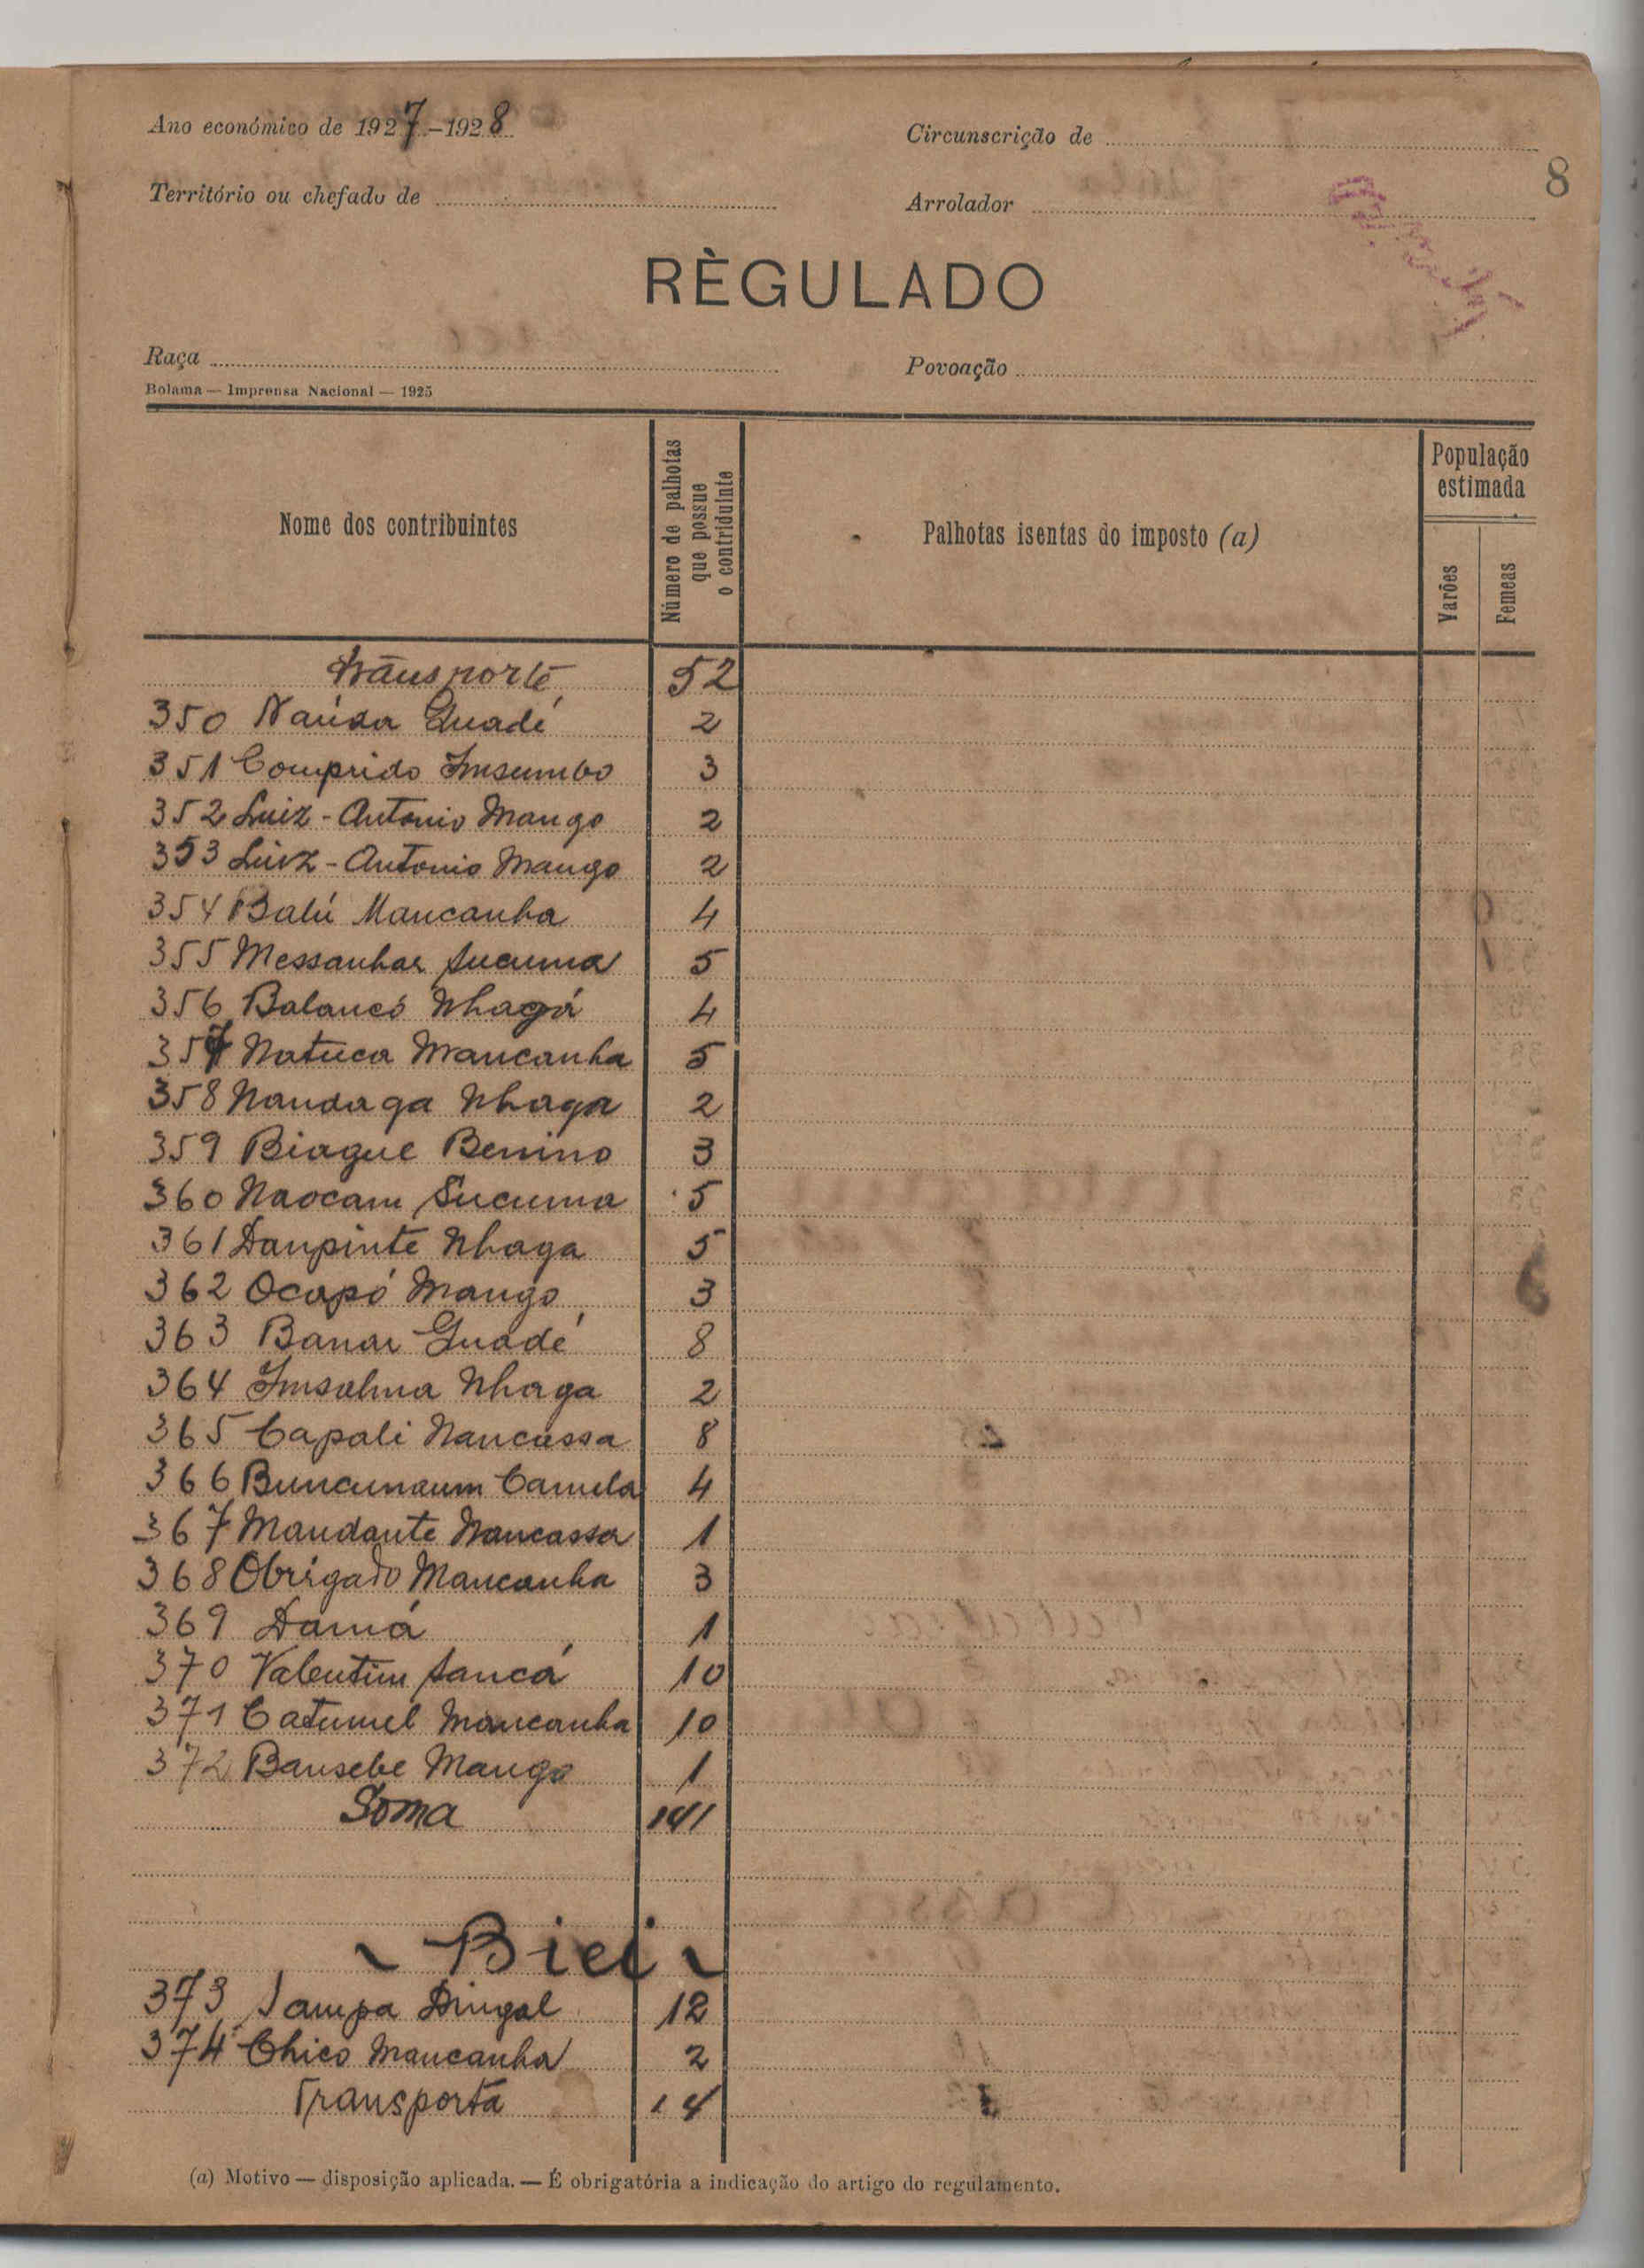 Ano económico de 1927-1928
Circunscrição de
8
Território ou chefado de
Arrolador
RÈGULADO
Raça
Povoação
Bolama — Imprensa Nacional — 1925
Nome dos contribuintes
Número de palhotas que possue o contriduinte
Palhotas isentas do imposto (a)
População estimada
Varões
Femeas
Transporte 52
350 Naúda Guadé 2
351 Comprido Insumbo 3
352 Luiz - Antonio Mango 2
353 Luiz - Antonio Mango 2
354 Balú Mancanha 4
355 Messanhar Sucuma 5
356 Balancó Nhagá 4
357 Natuca Mancanha 5
358 Nandaga Nhaga 2
359 Biague Benino 3
360 Naocam Sucuma 5
361 Danpinte Nhaga 5
362 Ocapó Mango 3
363 Banar Guadé 8
364 Insalma Nhaga 2
365 Capali Nancassa 8
366 Buncunaum Camela 4
367 Mandante Nancassa 1
368 Obrigado Mancanha 3
369 Damá 1
370 Valentim Sancá 10
371 Catumel Mancanha 10
372 Bansebe Mango 1
Soma 141
Biei
373 Sampa Dingal 12
374 Chico Mancanha 2
Transporta 14
(a) Motivo — disposição aplicada. — É obrigatória a indicação do artigo do regulamento.